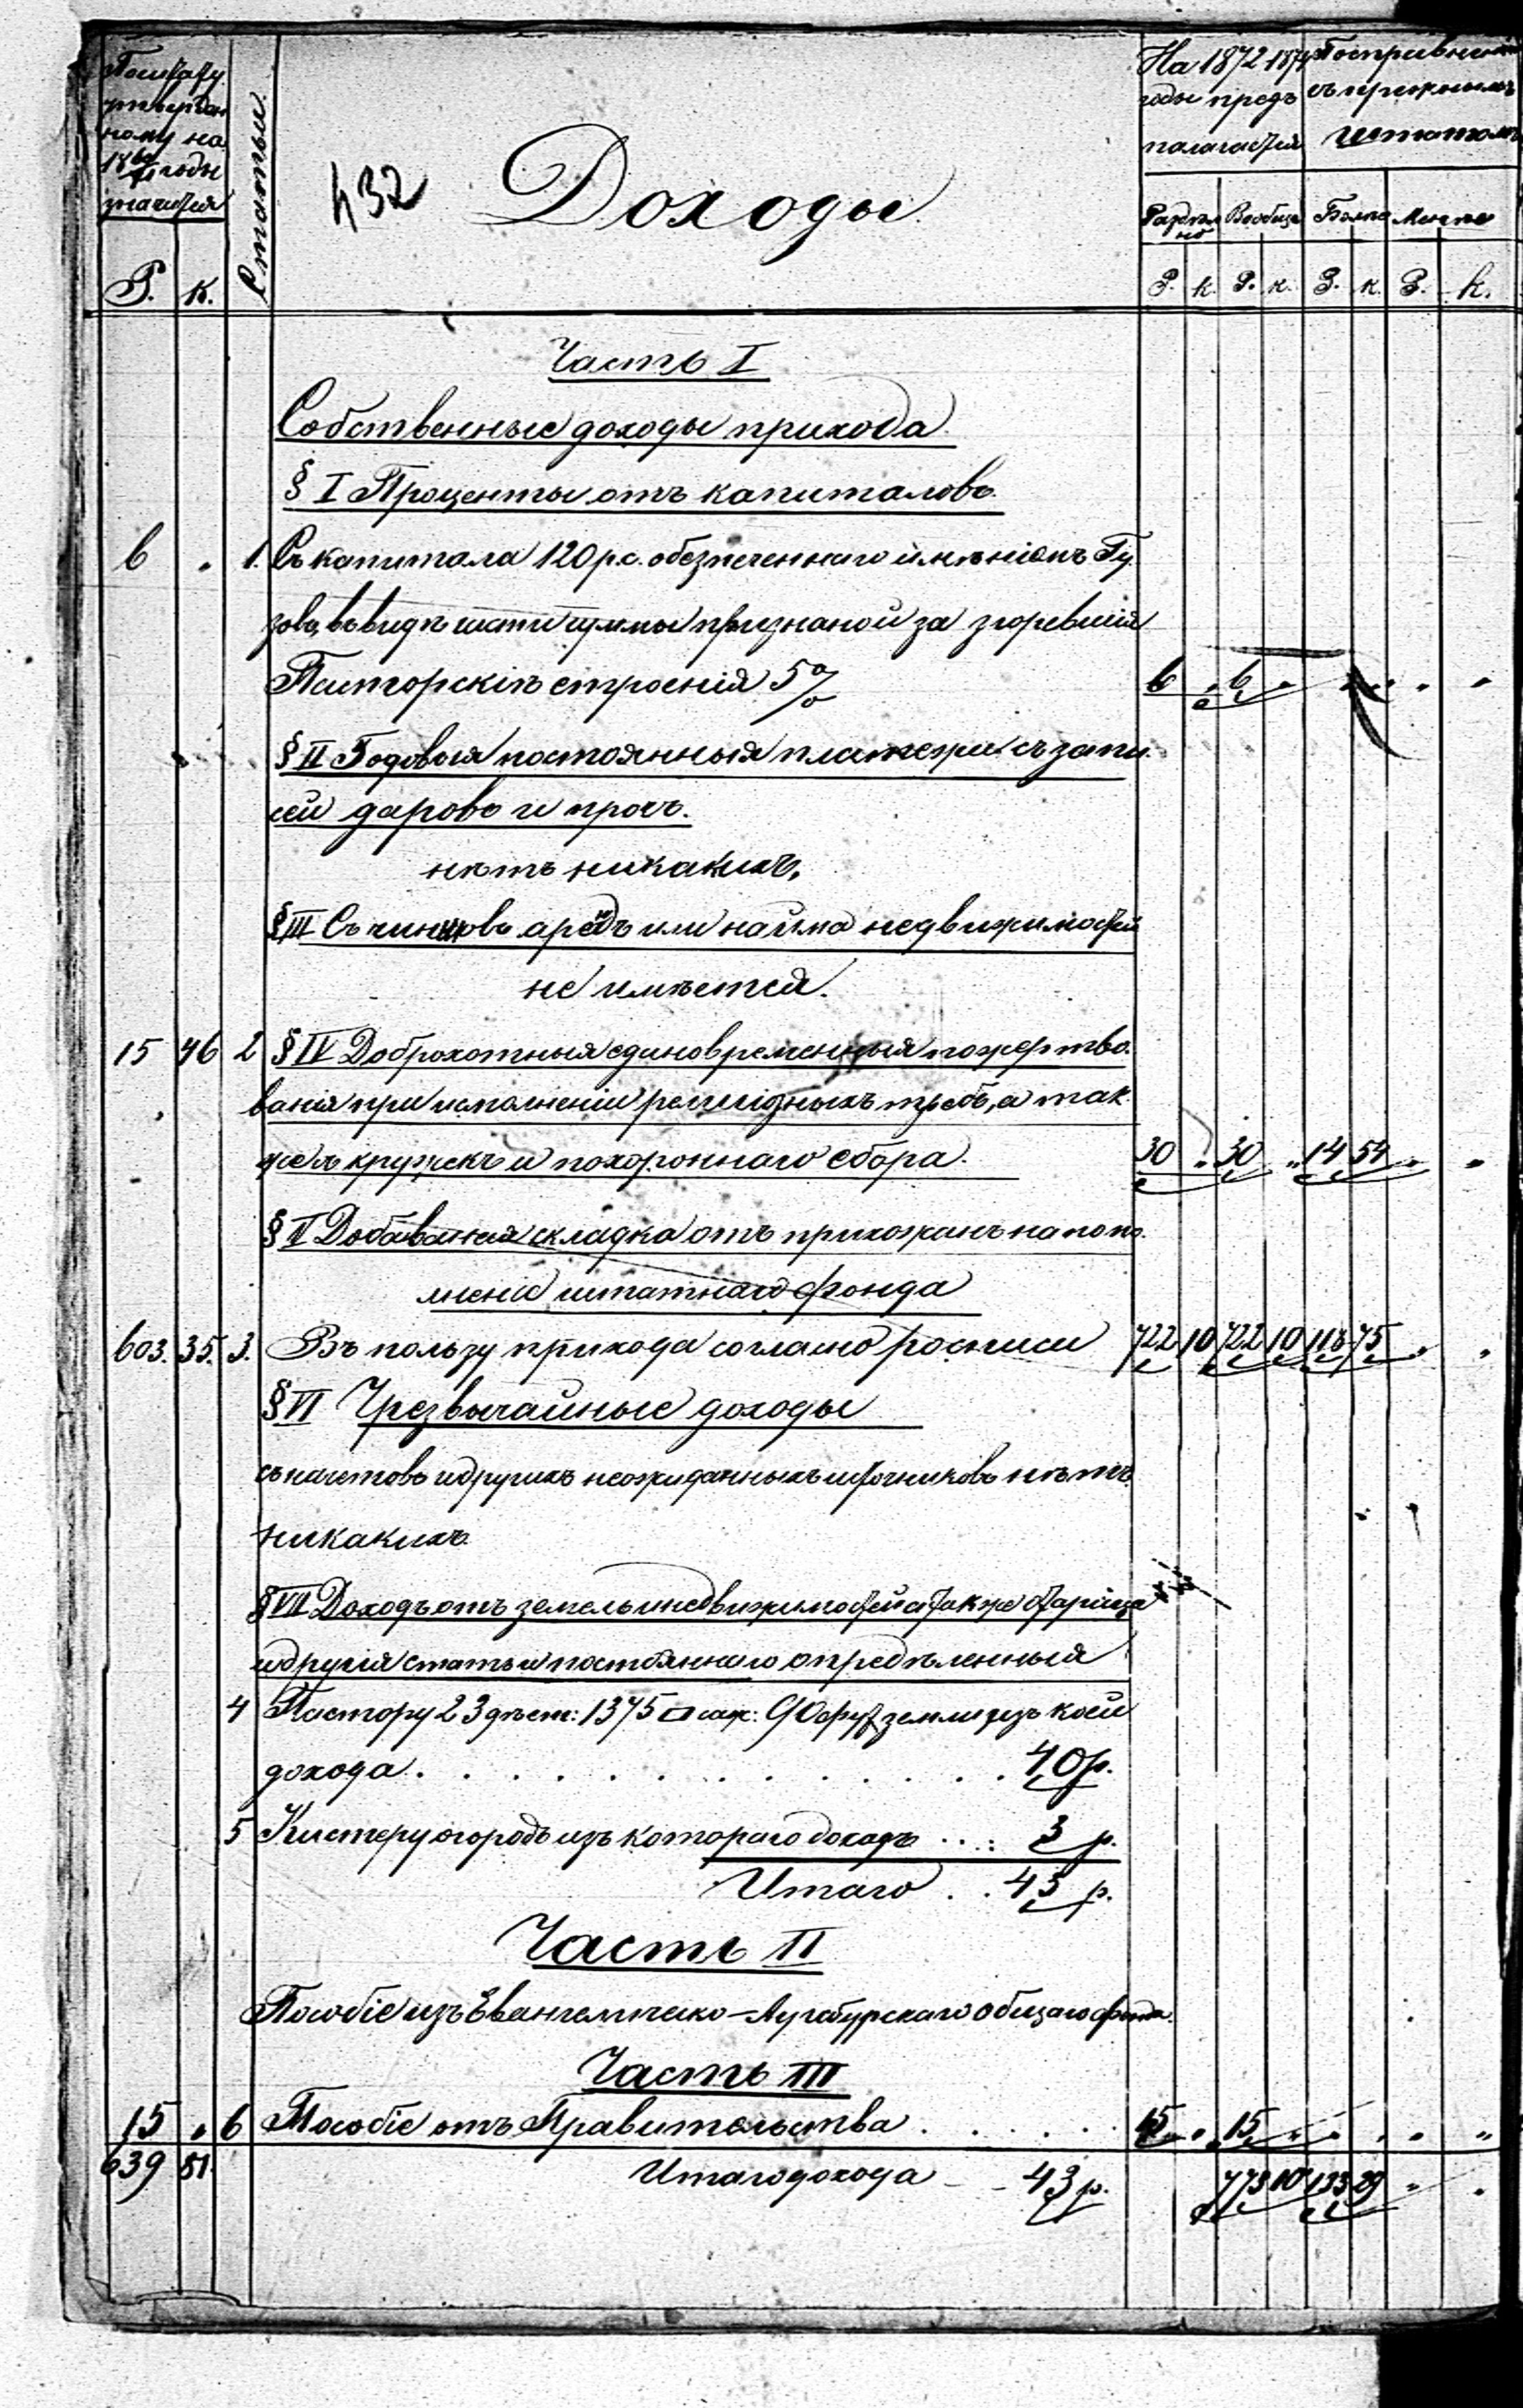 По штату
утвержден
ному на
1869/71 годы
значится
Р. к.
Статьи.
432
Доходы
На 1872-1874
годы предъ
полагается
По сравнению
съ прежнимъ
штатомъ
Раздѣль
но
Вообще
Болѣе
Менѣе
Р. к. Р. к. Р. к. Р. к.
Часть I
Собственные доходы прихода
§ I Проценты отъ капиталовъ.
6 „ 1. Съ капитала 120 р.с. обезпеченнаго имѣніемъ Гу
зова, въ видѣ части суммы признаной за згоревшія
Пасторскія строенія 5% 6 „ 6 „ „ „ „ „
§ II Годовыя постоянныя платежи съ запи
сей даровъ и проч.
нѣтъ никакихъ,
§ III Съ чиншовъ арендъ или найма недвижимостей
не имѣется.
15 46 2 § IV Доброхотныя единовременныя пожертво
ванія при исполненіи религіозныхъ требъ, а так
же съ кружекъ и похороннаго сбора. 30 „ 30 „ 14 54 „ „
§ V Добавочная складка отъ прихожанъ на попол
неніе штатнаго фонда
603. 35. 3. Въ пользу прихода согласно росписи 722 10 722 10 118 75 „ „
§ VI Чрезвычайные доходы
съ начетовъ и другихъ неожиданныхъ источниковъ нѣтъ
никакихъ.
§ VII Доходъ отъ земель и недвижимостей а также
и другія статьи постояннаго опредѣленныя
4 Пастору 23 дѣст: 1375 □ саж: 90 фут земли изъ коей
дохода . . . . . . . . . . . . 40 р.
5 Кистеру огородъ изъ котораго доходъ . . . . 3 р.
Итаго . . 43 р.
Часть II
Пособіе изъ Евангелическо-Аугсбурскаго общаго фонда.
Часть III
15 „ 6 Пособіе отъ Правительства . . . . . 15 „ 15 „ „ „ „ „
639 81. Итаго дохода - - 43 р. 773 10 133 29 „ „